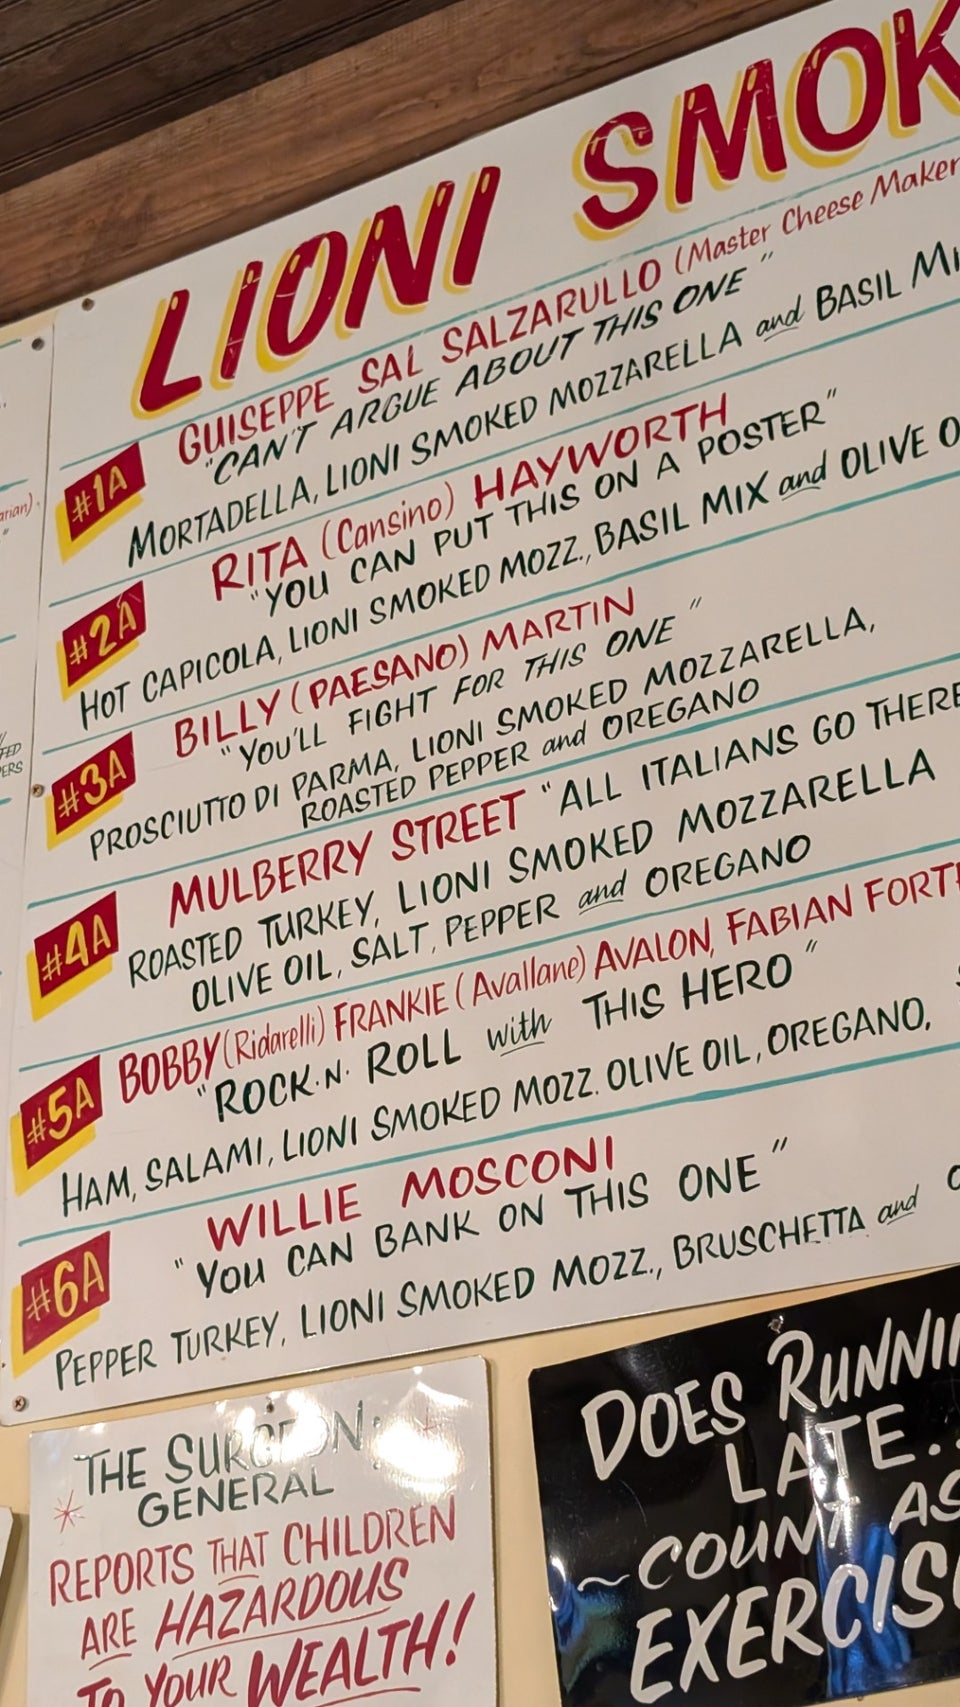 LIONI SMOK
GUISEPPE SAL SALZARULLO (Master Cheese Maker
"CAN'T ARGUE ABOUT THIS ONE"
#1A
MORTADELLA, LIONI SMOKED MOZZARELLA and BASIL MI
RITA (Cansino) HAYWORTH
"YOU CAN PUT THIS ON A POSTER"
#2A
HOT CAPICOLA, LIONI SMOKED MOZZ., BASIL MIX and OLIVE O
BILLY (PAESANO) MARTIN
"YOU'LL FIGHT FOR THIS ONE"
#3A
PROSCIUTTO DI PARMA, LIONI SMOKED MOZZARELLA,
ROASTED PEPPER and OREGANO
MULBERRY STREET "ALL ITALIANS GO THERE
#4A
ROASTED TURKEY, LIONI SMOKED MOZZARELLA
OLIVE OIL, SALT, PEPPER and OREGANO
BOBBY (Ridarelli) FRANKIE (Avallane) AVALON, FABIAN FORT
"ROCK·N· ROLL with THIS HERO"
#5A
HAM, SALAMI, LIONI SMOKED MOZZ. OLIVE OIL, OREGANO,
WILLIE MOSCONI
"YOU CAN BANK ON THIS ONE"
#6A
PEPPER TURKEY, LIONI SMOKED MOZZ., BRUSCHETTA and
arian)
FED
PERS
THE SURGEON
GENERAL
REPORTS THAT CHILDREN
ARE HAZARDOUS
TO YOUR WEALTH!
DOES RUNNIN
LATE..
~COUNT AS
EXERCIS